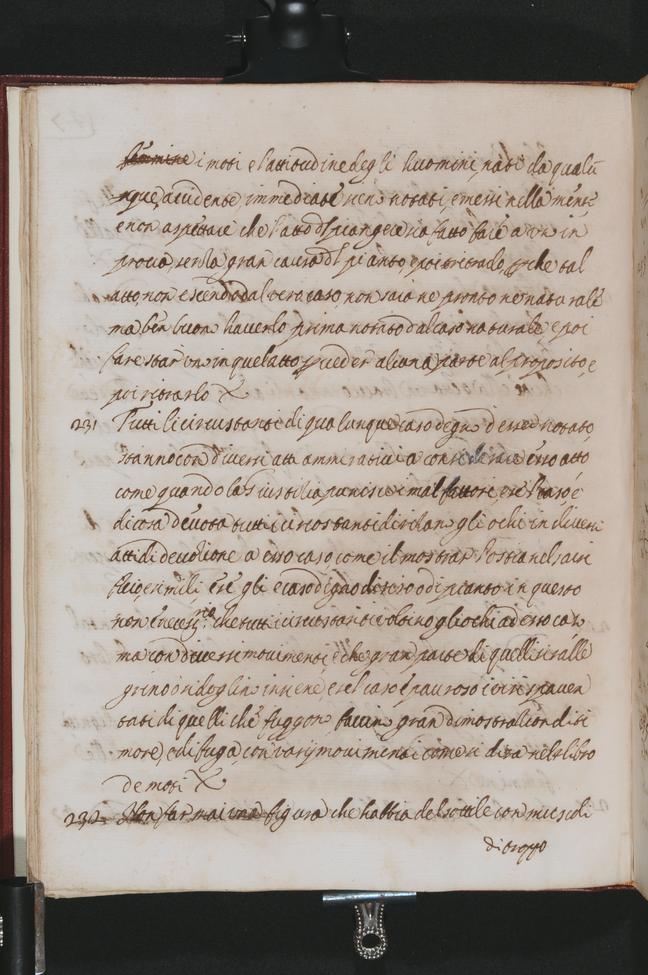 i moti e l'attitudine degli huomini nati da qualũ
que accidente, immediatè sieno notati, e messi nella mente
e non aspettare che l'atto di piangere sia fatto fare à un in
prova, senza gran causa di pianto, e poi ritrarlo, perche tal
atto, non essendo dal vero caso, non sara ne pronto ne naturale
ma ben buon haverlo prima notato dal caso naturale, e poi
fare star un in quel atto per veder alcuna parte al proposito, e
poi ritrarlo
231 Tutti li circustanti di qualunque caso degno d'esser notato
stanno con diversi atti ammirativi a considerare esso atto
come quando la Giustitia punisce i malfattori, e se'l caso è
di cosa devota tutti i circostanti drizan gli ochi in diversi
atti di devotione a esso caso come il mostrar l'ostia nel sacri
ficio e simili e s'è gli e caso digno di riso o di pianto in questo
non è necess.rio che tutti i circostanti voltino gli ochi ad esso caso
ma con diversi movimenti, e che gran parte di quelli si ralle
grino ò si doglin insieme e se'l caso è pauroso i visi spaven
tati di quelli che fuggon, faccin gran dimostration di ti
more, e di fuga, con varij movimenti come si dira nel libro
de moti
232 Non far mai una figura che habbia del sottile con muscoli
di troppo